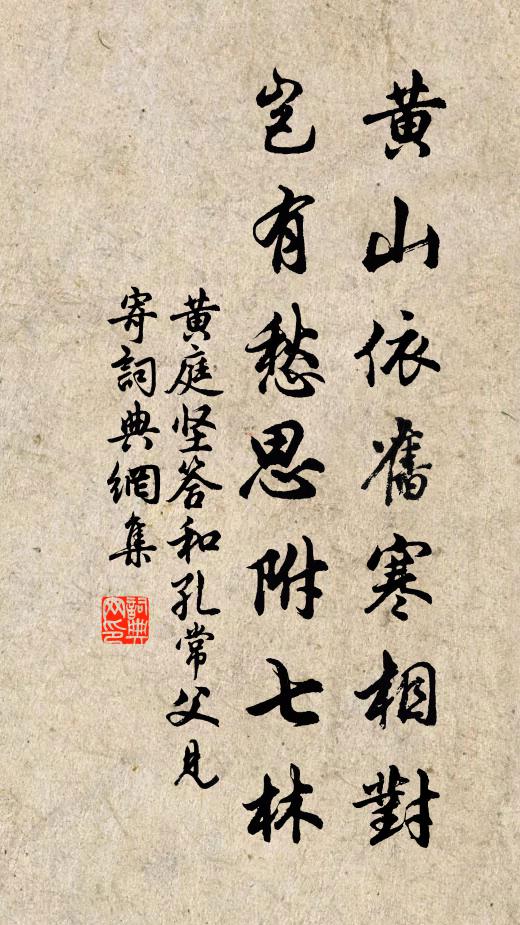 黄山依舊寒相對
豈有愁思附七林
黄庭坚答和孔常父見
寄詞典網集
詞典
网印